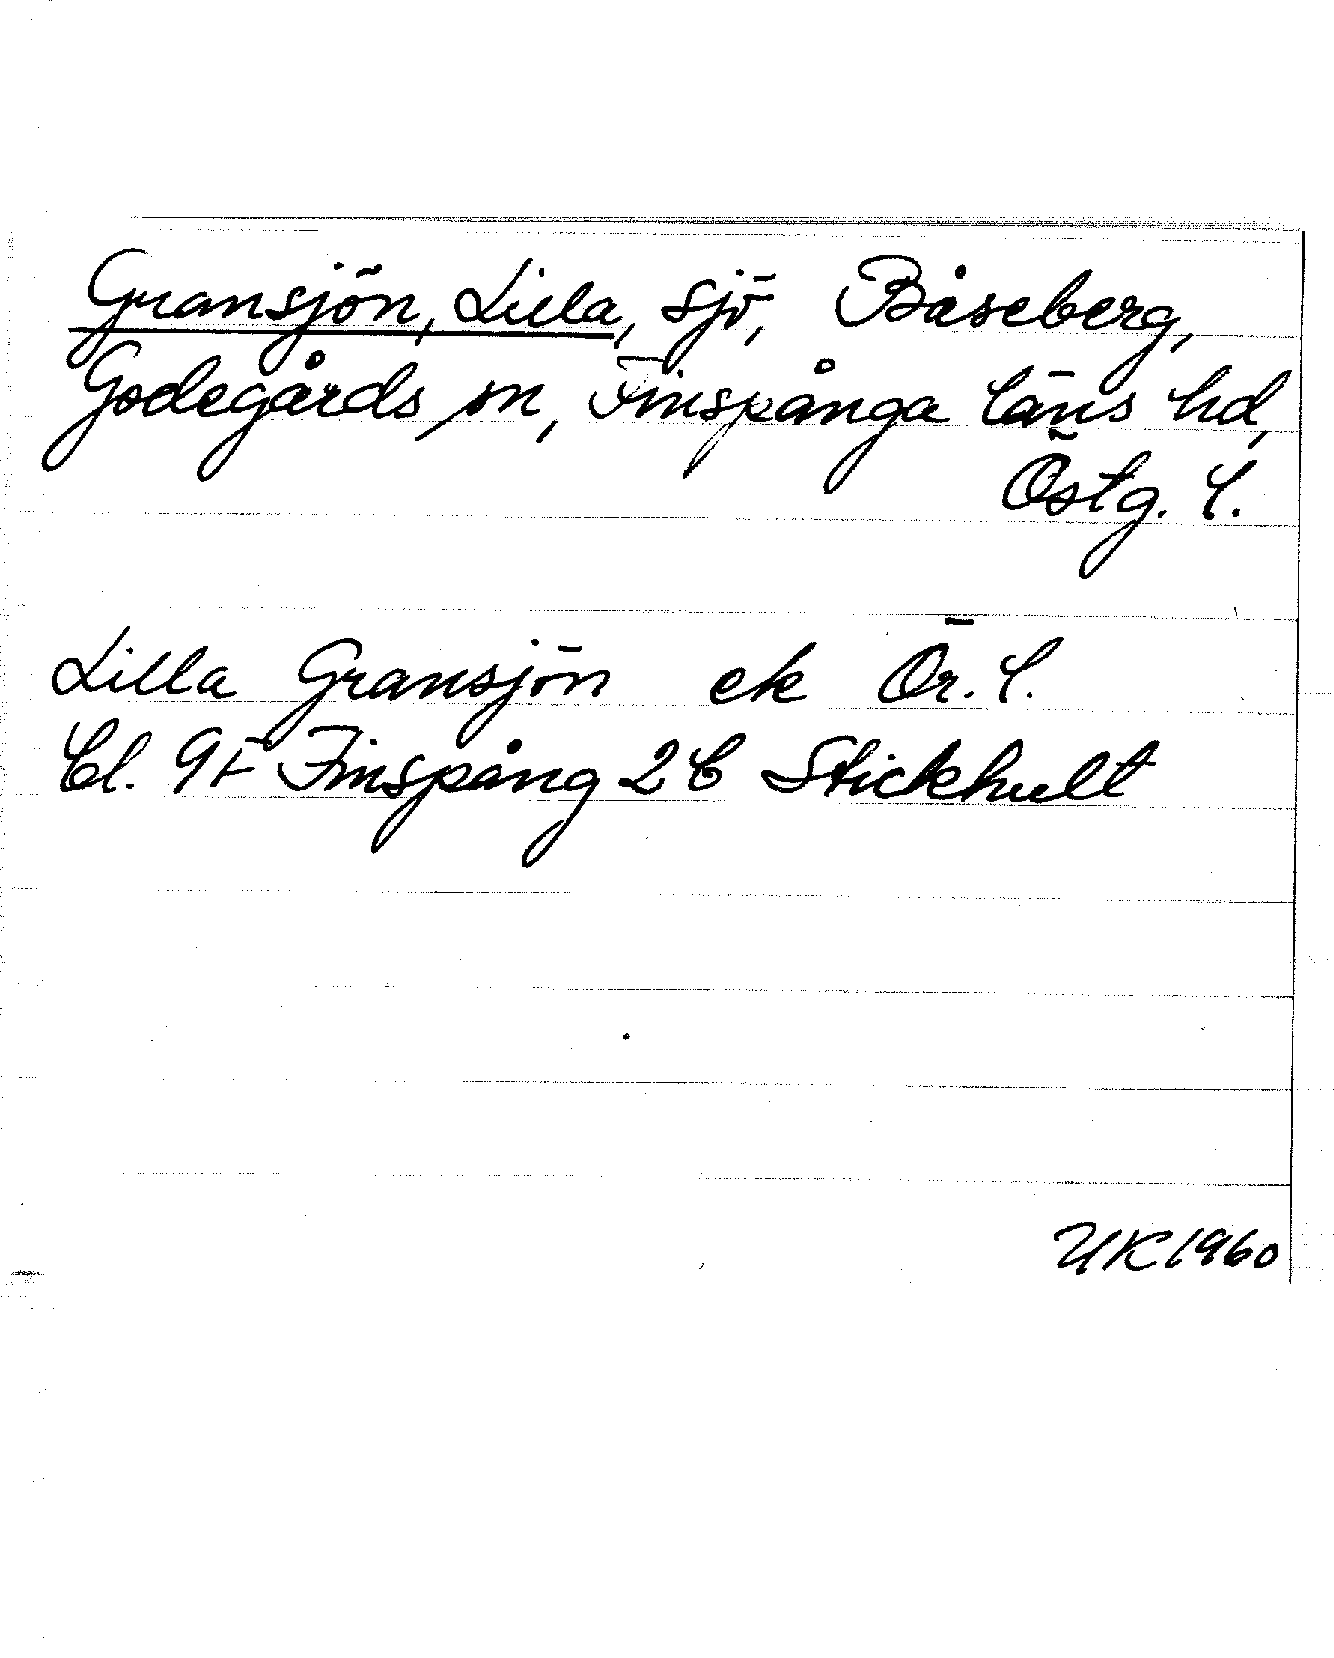 Gransjön, Lilla, sjö, Båseberg,
Godegårds sn, Finspånga läns hd,
Östg. l.
Lilla Gransjön ek Ör. l.
Cl. 9F Finspång 2 C Stickhult
UK 1960